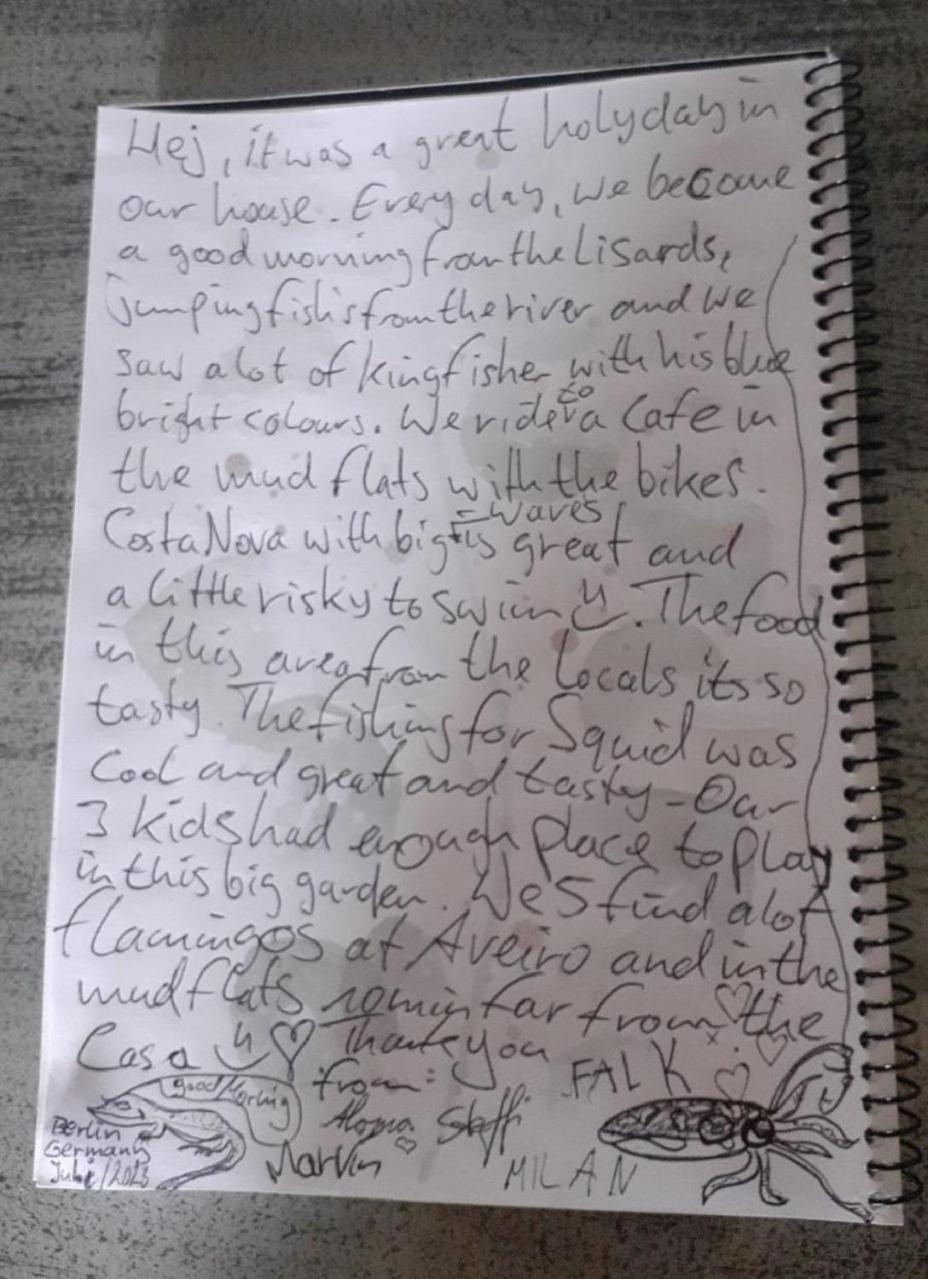 Hej, it was a great holyday in
our house. Every day, we become
a good morning from the Lisards,
Jumping fishis from the river and we
saw a lot of kingfisher with his blue
bright colours. We ride to a Cafe in
the mud flats with the bikes.
Costa Nova with big waves is great and
a little risky to swim. The food
in this area from the Locals its so
tasty. The fishing for Squid was
Cool and great and tasty - Our
3 kids had enough place to play
in this big garden. We 5 find a lot
flamingos at Aveiro and in the
mudflats far from the
Casa Thank you
good Morning
from: FALK
Steffi
Marvin MILAN
Berlin
Germany
/2023